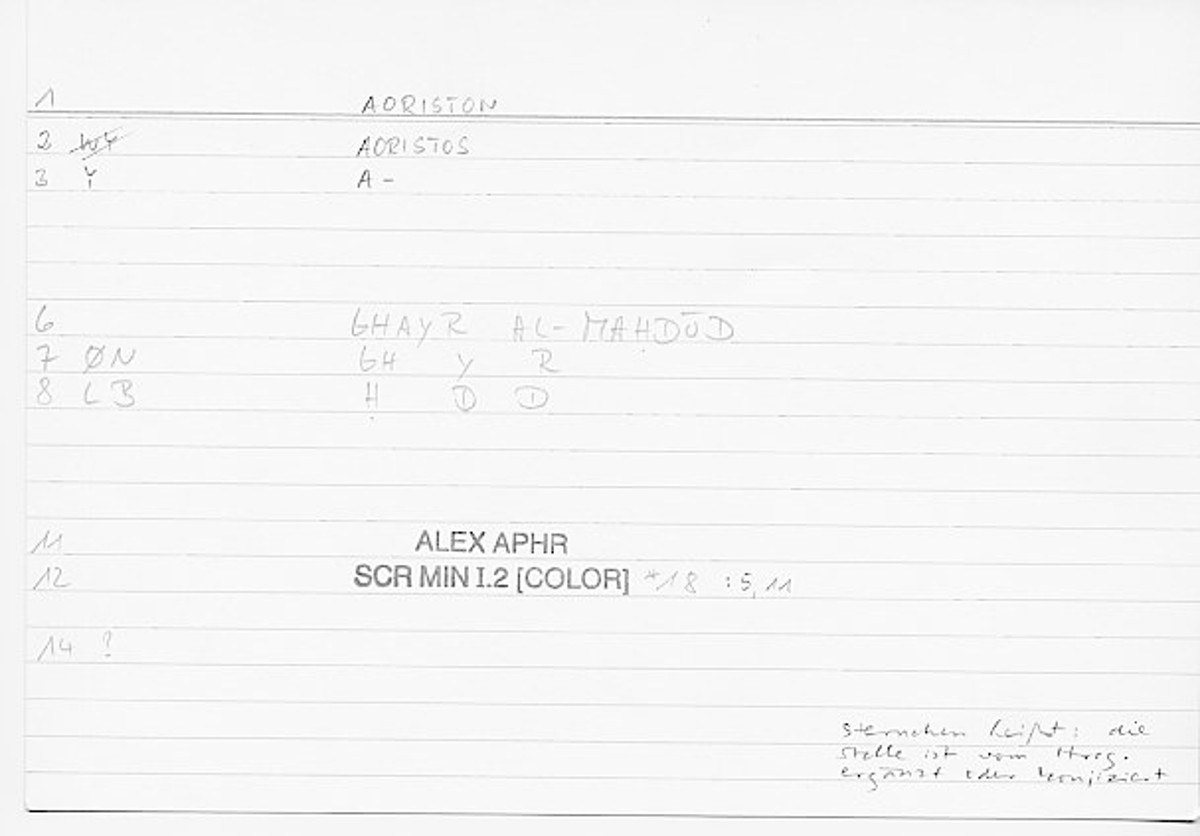 1 AORISTON
2 W̶Y̶ AORISTOS
3 Y A -
6 GHAYR AL-MAḤDŪD
7 ØN GH Y R
8 LB Ḥ D D
11 ALEX APHR
12 SCR MIN I.2 [COLOR] *18 :5,11
14 ?
Sternchen heißt: die
Stelle ist vom Hrsg.
ergänzt oder konjiziert